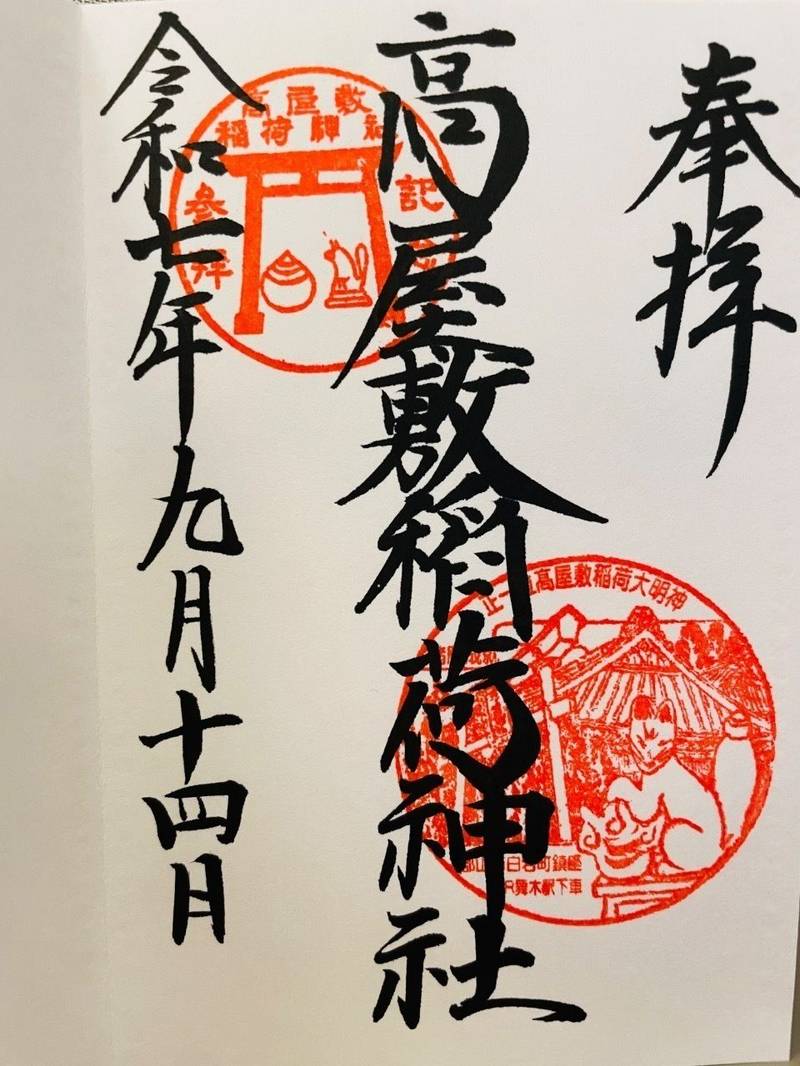 奉拝
高屋敷稲荷神社
令和七年九月十四日
高屋敷
稲荷神社
参拝
記念
正一位高屋敷稲荷大明神
白岩町鎮座
JR舞木駅下車